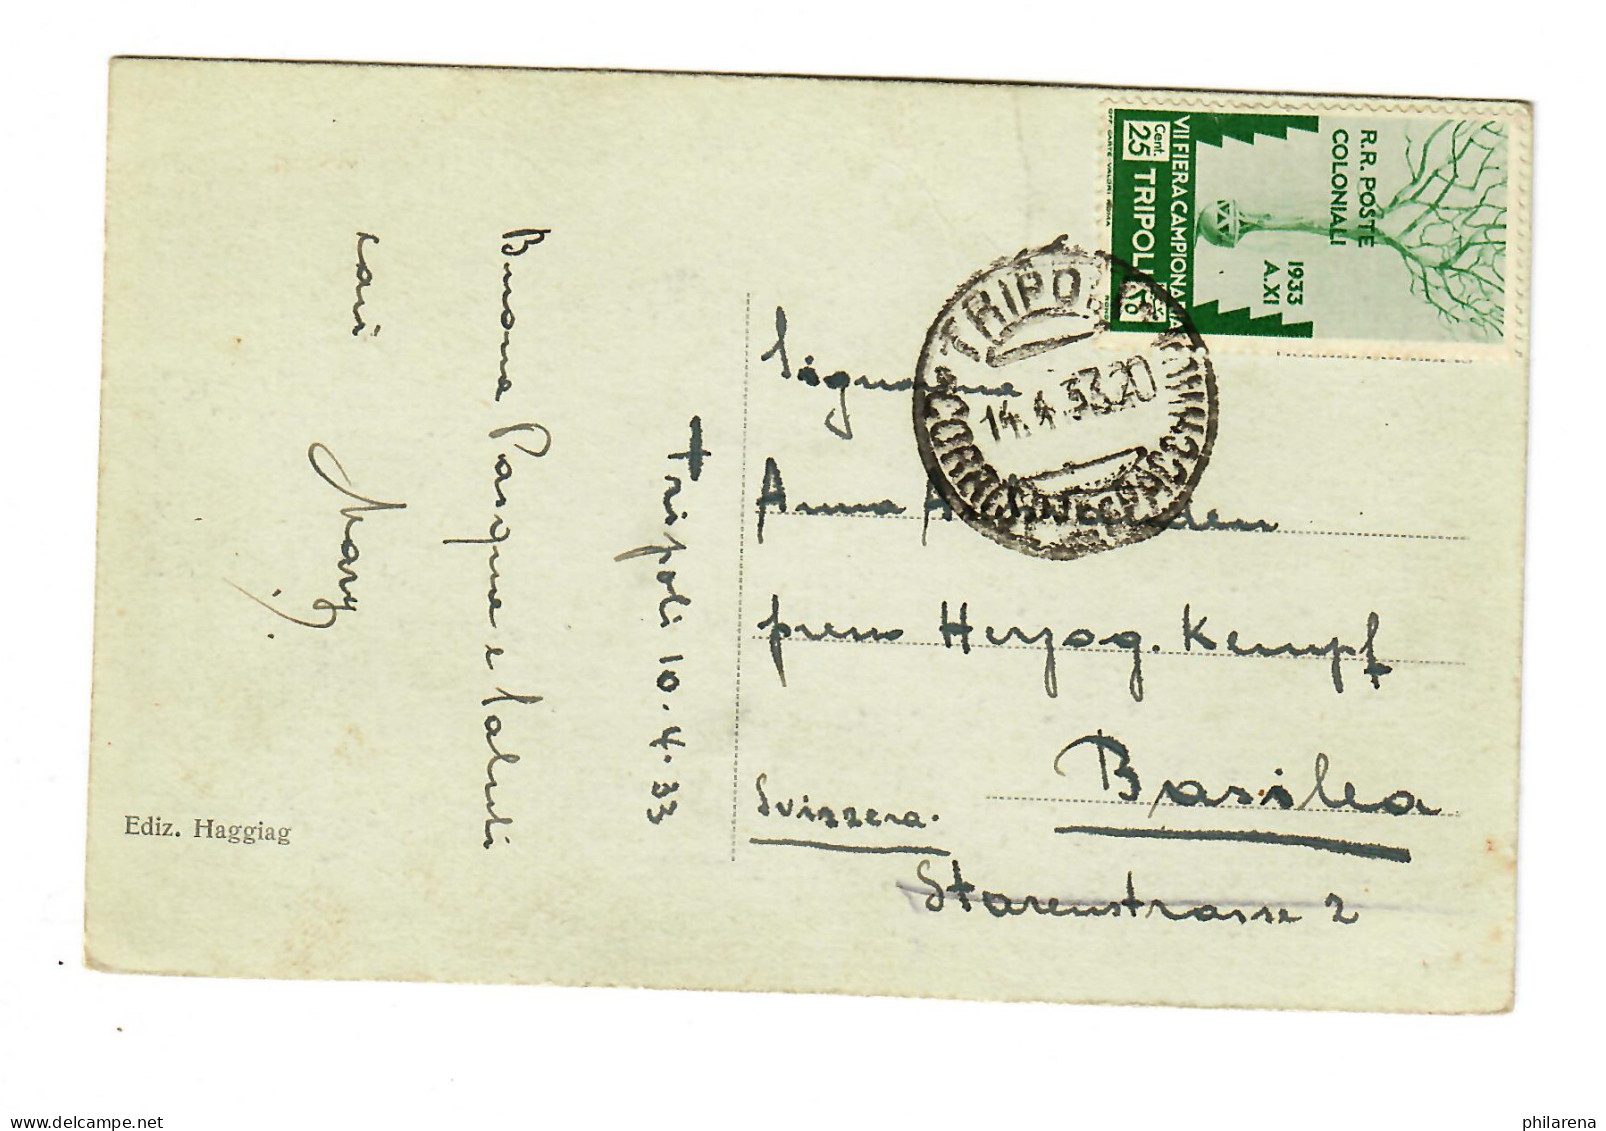 Tripoli 10.4.33
Buona Pasqua e saluti
cari
Mary
Ediz. Haggiag
VII FIERA CAMPIONARIA
Cent. 25 TRIPOLI
R.R. POSTE
COLONIALI
1933
A.XI
TRIPOLI
14.4.33.20
CORRISP
PACCHI
Signorina
Anna
presso Herzog. Kempf
Basilea
Svizzera.
Starenstrasse 2
philarena.com